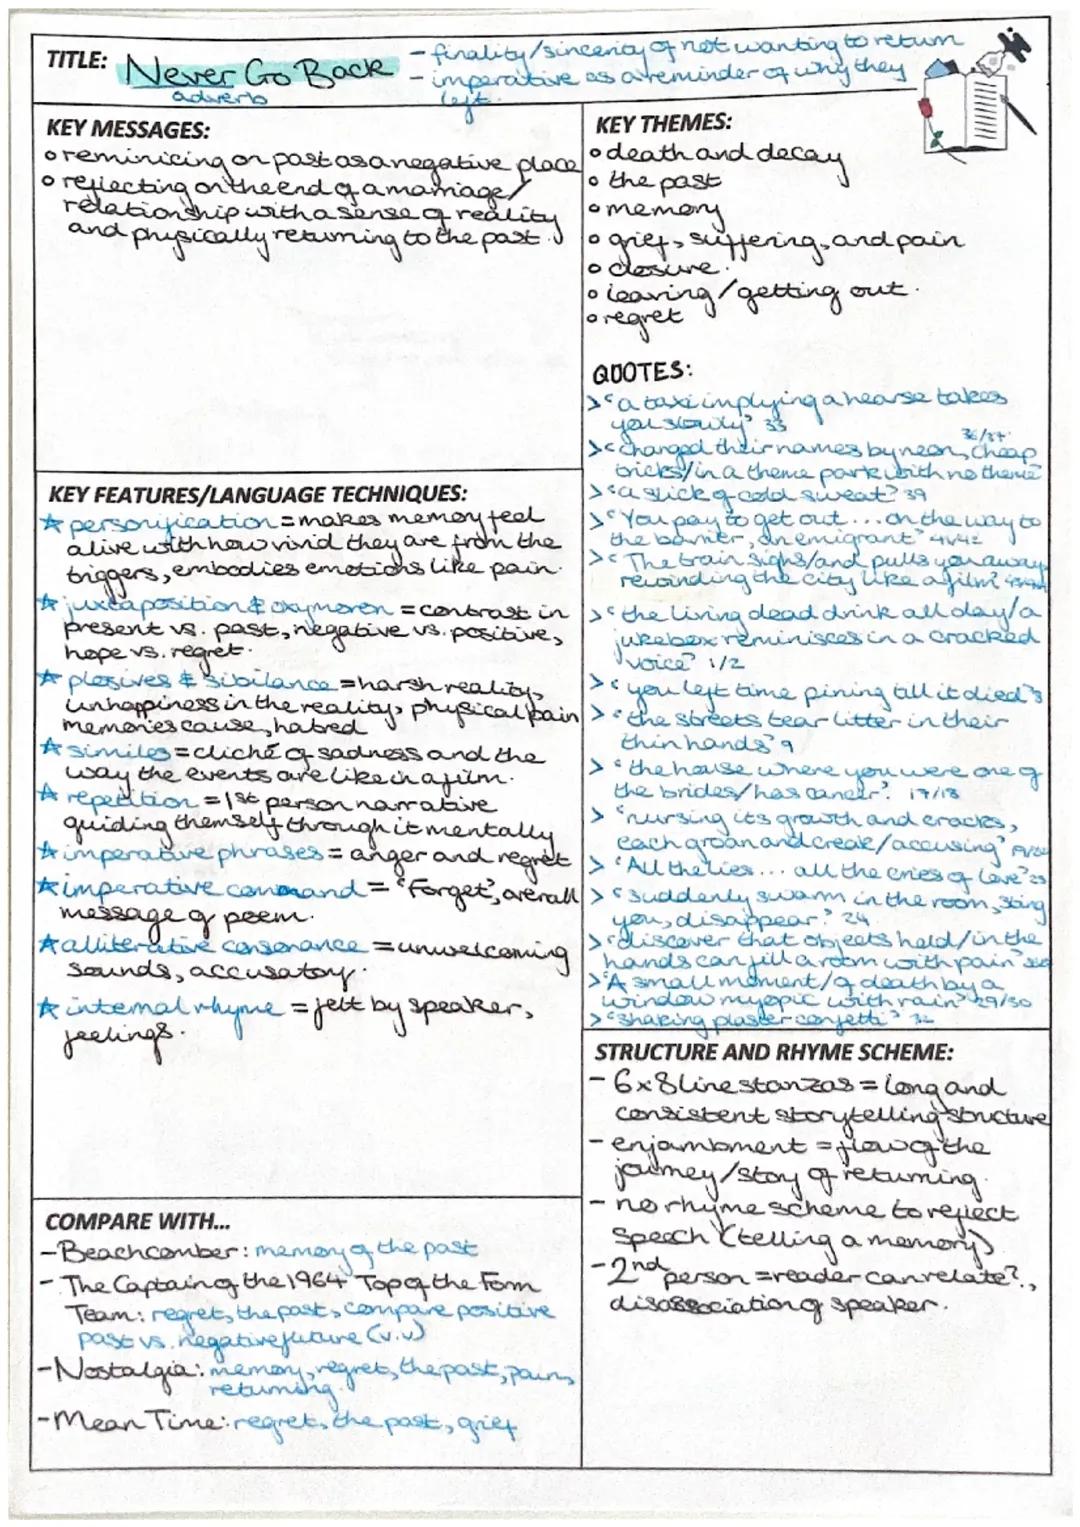 TITLE: Never Go Back
adverb
- finality/sincerity of not wanting to return
- imperative as a reminder of why they
left.
KEY MESSAGES:
o reminicing on past as a negative place
o reflecting on the end of a marriage/
relationship with a sense of reality
and physically returning to the past.
KEY THEMES:
o death and decay
o the past
o memory
o grief, suffering, and pain
o closure.
o leaving/getting out.
o regret
QUOTES:
> "a taxi implying a hearse takes
you slowly" 33
36/37
> "changed their names by neon, cheap
tricks/in a theme park with no theme"
> "a slick of cold sweat" 39
> "You pay to get out... on the way to
the barrier, an emigrant" 41/42
> "The train sighs/and pulls you away,
rewinding the city like a film"
> "the living dead drink all day/a
jukebox reminisces in a cracked
voice" 1/2
> "you left time pining till it died" 8
> "the streets tear litter in their
thin hands" 9
> "the house where you were one of
the brides/has cancer". 17/18
> "nursing its growth and cracks,
each groan and creak/accusing" 19/20
> "All the lies... all the cries of love" 23
> "suddenly swarm in the room, sting
you, disappear." 24
> "discover that objects held/in the
hands can fill a room with pain"
> "A small moment/of death by a
window myopic with rain" 29/30
> "shaking plaster confetti" 32
KEY FEATURES/LANGUAGE TECHNIQUES:
☆ personification = makes memory feel
alive with how vivid they are from the
triggers, embodies emotions like pain.
☆ juxtaposition & oxymoron = contrast in
present vs. past, negative vs. positive,
hope vs. regret.
☆ plosives & sibilance = harsh reality,
unhappiness in the reality, physical pain
memories cause, hatred
☆ similes = cliché of sadness and the
way the events are like in a film.
☆ repetition = 1st person narrative
guiding themself through it mentally
☆ imperative phrases = anger and regret
☆ imperative command = 'Forget', overall
message of poem.
☆ alliterative consonance = unwelcoming
sounds, accusatory.
☆ internal rhyme = felt by speaker,
feelings.
STRUCTURE AND RHYME SCHEME:
- 6x8 line stanzas = long and
consistent storytelling structure
- enjambment = flow of the
journey/story of returning.
- no rhyme scheme to reflect
speech (telling a memory)
- 2nd person = reader can relate?,
disassociation of speaker.
COMPARE WITH...
- Beachcomber: memory of the past
- The Captain of the 1964 Top of the Form
Team: regret, the past, compare positive
past vs. negative future (v.v)
- Nostalgia: memory, regret, the past, pain,
returning.
- Mean Time: regret, the past, grief